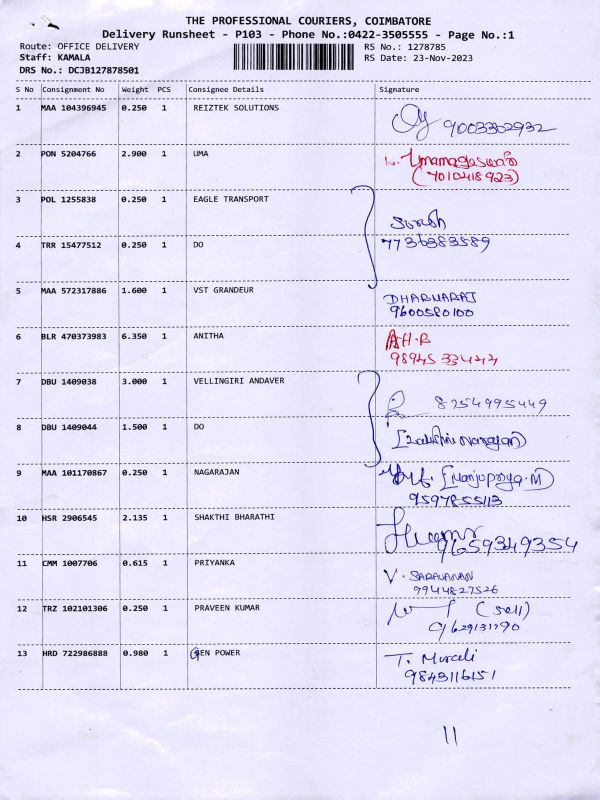 THE PROFESSIONAL COURIERS, COIMBATORE
Delivery Runsheet - P103 - Phone No.:0422-3505555 - Page No.:1
Route: OFFICE DELIVERY RS No.: 1278785
Staff: KAMALA RS Date: 23-Nov-2023
DRS No.: DCJB127878501
S No Consignment No Weight PCS Consignee Details Signature
1 MAA 104396945 0.250 1 REIZTEK SOLUTIONS
9003302932
2 PON 5204766 2.900 1 UMA Umamageswari
(7010418923)
3 POL 1255838 0.250 1 EAGLE TRANSPORT
Suresh
4 TRR 15477512 0.250 1 DO 7736383589
5 MAA 572317886 1.600 1 VST GRANDEUR DHARMARAJ
9600580100
6 BLR 470373983 6.350 1 ANITHA A.H.R
98945 33444
7 DBU 1409038 3.000 1 VELLINGIRI ANDAVER
8254995449
8 DBU 1409044 1.500 1 DO
9 MAA 101170867 0.250 1 NAGARAJAN [Manjupriya.M]
9597855113
10 HSR 2906545 2.135 1 SHAKTHI BHARATHI
9659349354
11 CMM 1007706 0.615 1 PRIYANKA V. SARAVANAN
9944827526
12 TRZ 102101306 0.250 1 PRAVEEN KUMAR
9629131790
13 HRD 722986888 0.980 1 GEN POWER T. Murali
9843116151
11